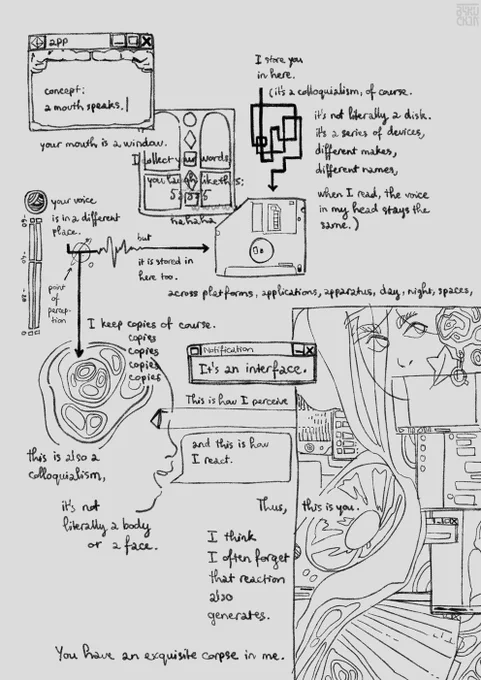 app
concept:
a mouth speaks.|
your mouth is a window.
I collect your words,
you laugh like this:
hahaha
I store you
in here.
(it's a colloquialism, of course.
it's not literally a disk.
it's a series of devices,
different makes,
different names,
when I read, the voice
in my head stays the
same.)
your voice
is in a different
place.
but
it is stored in
here too.
point
of
percep-
tion
across platforms, applications, apparatus, day, night, spaces,
I keep copies of course.
copies
copies
copies
copies
Notification
It's an interface.
This is how I perceive
and this is how
I react.
this is also a
colloquialism,
it's not
literally a body
or a face.
Thus, this is you.
I think
I often forget
that reaction
also
generates.
You have an exquisite corpse in me.